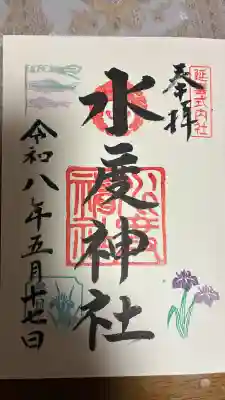 延喜式内社
奉拝
水度神社
令和八年五月十七日